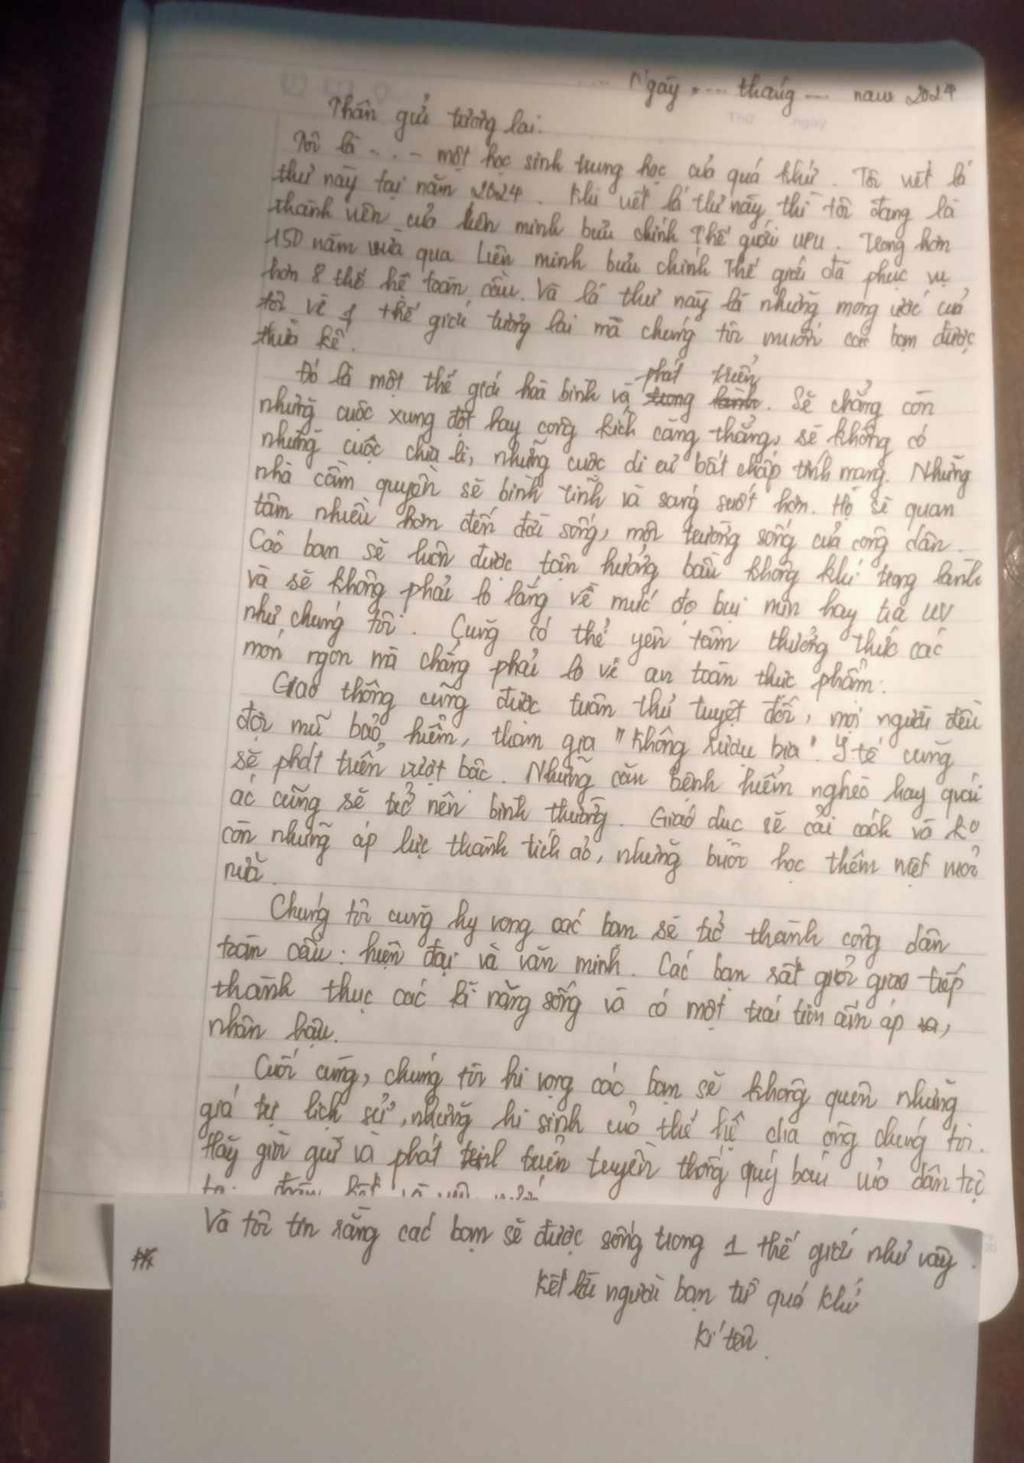 Ngày .... tháng .... năm 2024
Thân gửi tương lai.
Tôi là .... một học sinh trung học của quá khứ. Tôi viết lá
thư này tại năm 2024. Khi viết lá thư này thì tôi đang là
thành viên của liên minh bưu chính Thế giới UPU. Trong hơn
150 năm vừa qua Liên minh bưu chính Thế giới đã phục vụ
hơn 8 thế hệ toàn cầu. Và lá thư này là những mong ước của
tôi về 1 thế giới tương lai mà chúng tôi muốn các bạn được
thừa kế.
Đó là một thế giới hoà bình và phát triển. Sẽ chẳng còn
những cuộc xung đột hay công kích căng thẳng, sẽ không có
những cuộc chia li, những cuộc di cư bất chấp tính mạng. Những
nhà cầm quyền sẽ bình tĩnh và sáng suốt hơn. Họ sẽ quan
tâm nhiều hơn đến đời sống, môi trường sống của công dân.
Các bạn sẽ luôn được tận hưởng bầu không khí trong lành
và sẽ không phải lo lắng về mức độ bụi mịn hay tia UV
như chúng tôi. Cũng có thể yên tâm thưởng thức các
món ngon mà chẳng phải lo về an toàn thực phẩm.
Giao thông cũng được tuân thủ tuyệt đối, mọi người đều
đội mũ bảo hiểm, tham gia "không rượu bia". Y tế cũng
sẽ phát triển vượt bậc. Những căn bệnh hiểm nghèo hay quái
ác cũng sẽ trở nên bình thường. Giáo dục sẽ cải cách và ko
còn những áp lực thành tích ảo, những buổi học thêm miệt mài
nữa.
Chúng tôi cũng hy vọng các bạn sẽ trở thành công dân
toàn cầu: hiện đại và văn minh. Các bạn rất giỏi giao tiếp
thành thục các kĩ năng sống và có một trái tim ấm áp,
nhân hậu.
Cuối cùng, chúng tôi hi vọng các bạn sẽ không quên những
giá trị lịch sử, những hi sinh của thế hệ cha ông chúng tôi.
Hãy gìn giữ và phát triển truyền thống quý báu của dân tộc
Và tôi tin rằng các bạn sẽ được sống trong 1 thế giới như vậy.
người bạn từ quá khứ
kí tên.